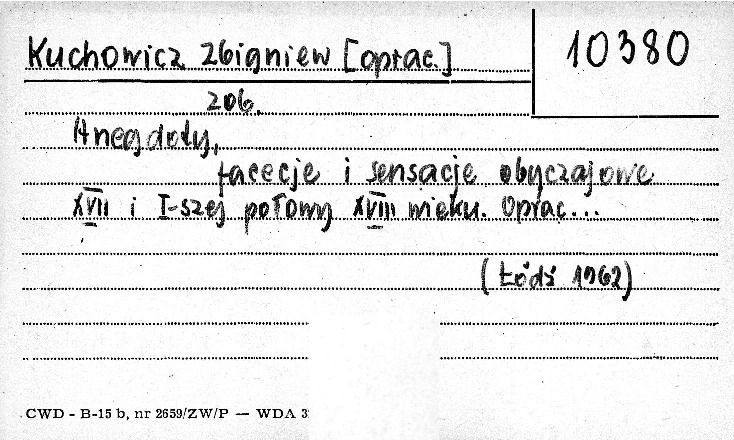 Kuchowicz Zbigniew [oprac.]
10380
206.
Anegdoty,
facecje i sensacje obyczajowe
XVII i I-szej połowy XVIII wieku. Oprac...
(Łódź 1962)
CWD - B-15 b, nr 2659/ZW/P — WDA 3